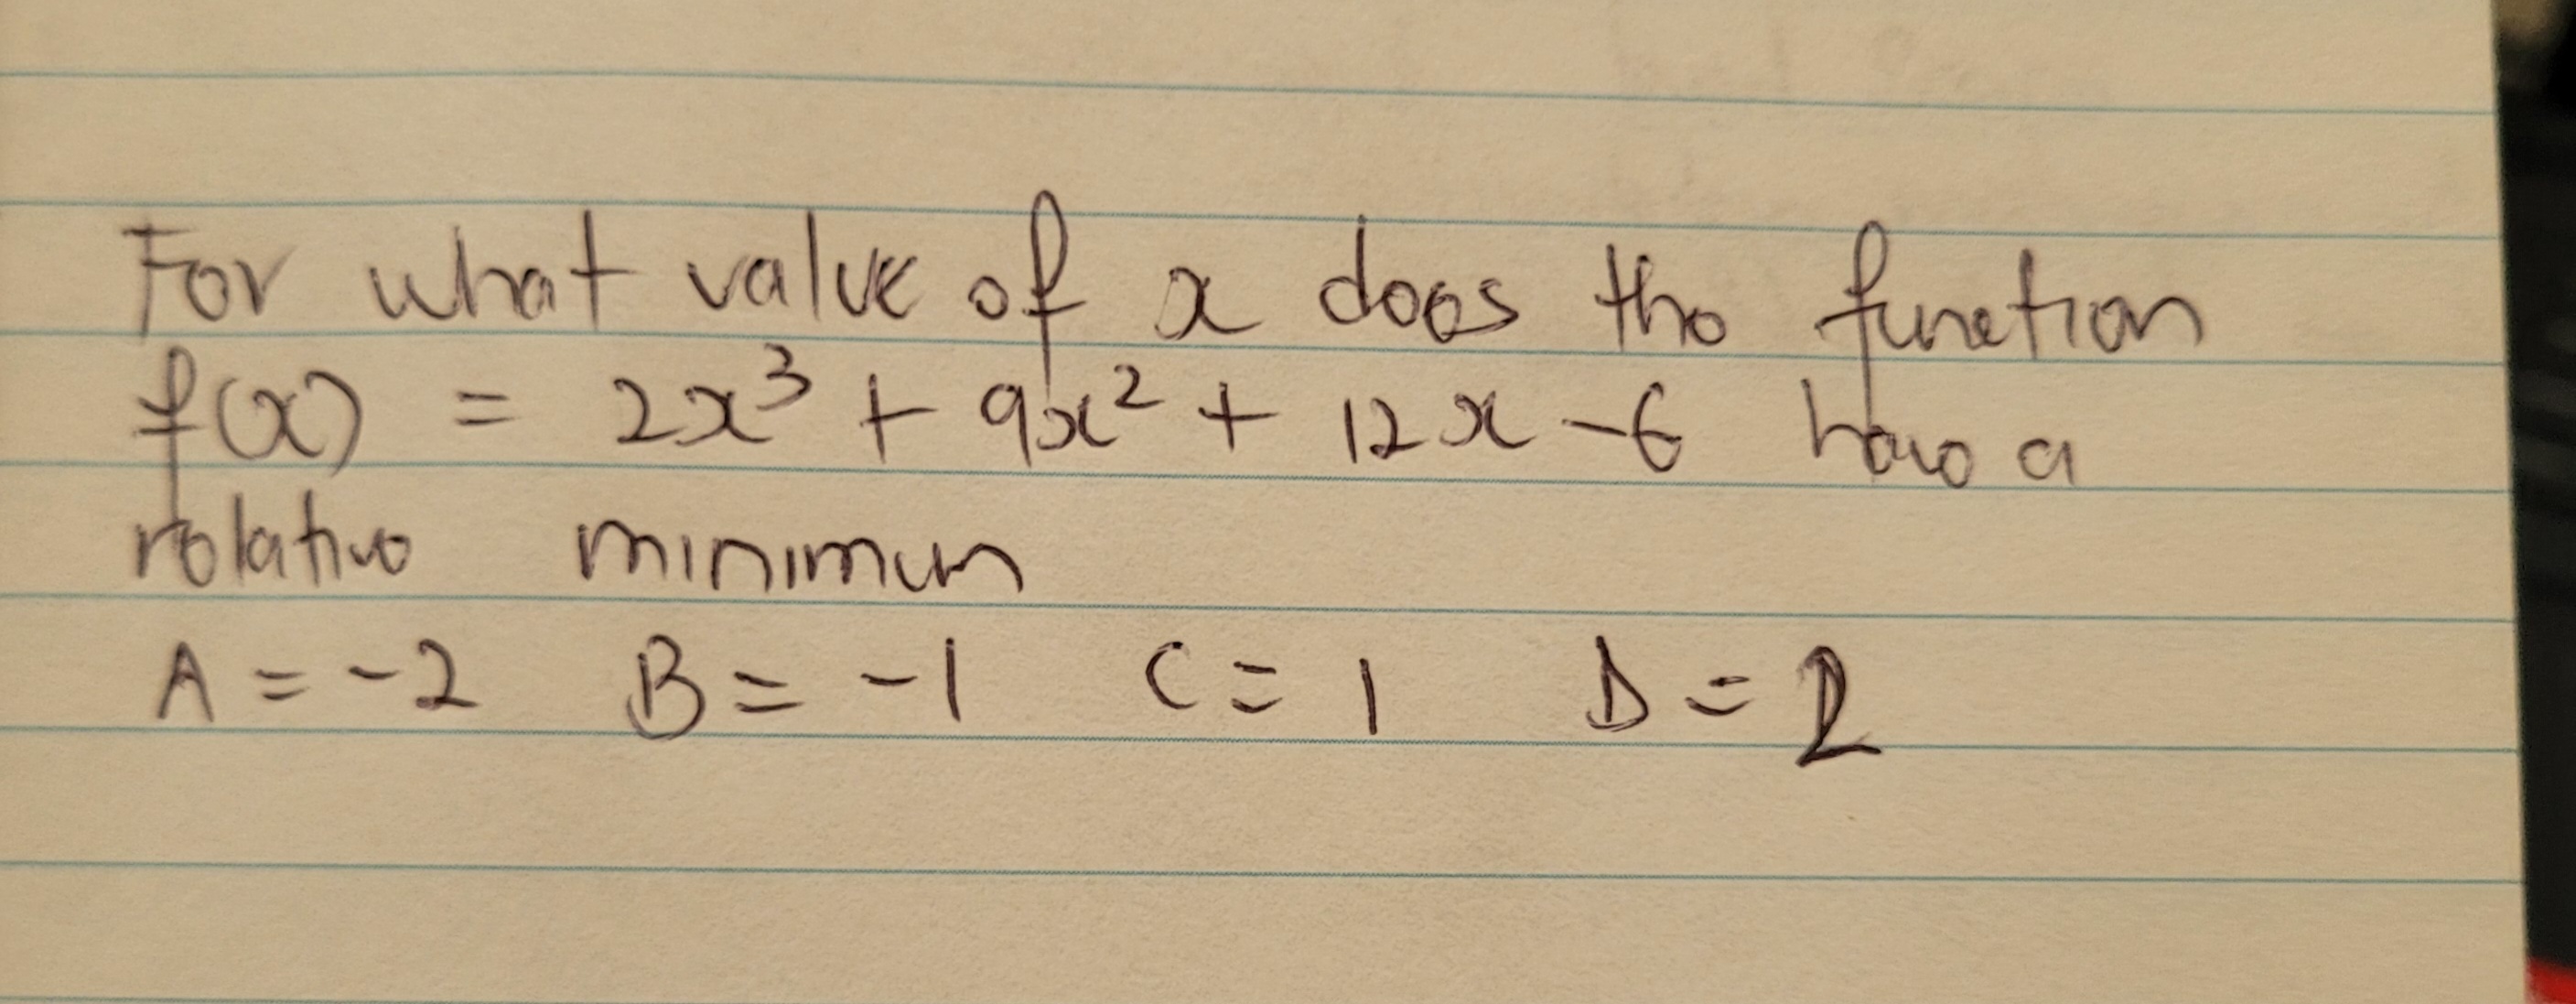 For what value of x does the function
f(x) = 2x³ + 9x² + 12x - 6 have a
relative minimum
A = -2 B = -1 C = 1 D = 2